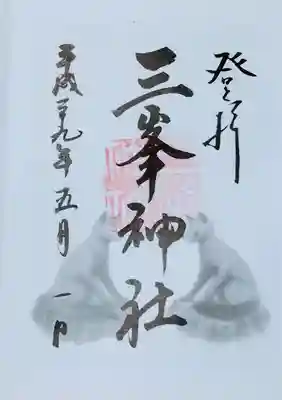 登拝
三峯神社
平成二十九年五月一日